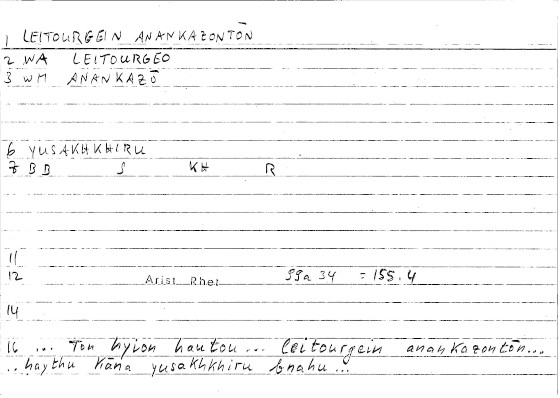 1 LEITOURGEIN ANANKAZONTŌN
2 WA LEITOURGEO
3 WM ANANKAZŌ
6 YUSAKHKHIRU
7 BB S KH R
11
12 Arist Rhet 99a 34 = 155.4
14
16 ... Ton hyion hautou ... leitourgein anankazontōn...
.. haythu kāna yusakhkhiru bnahu ...